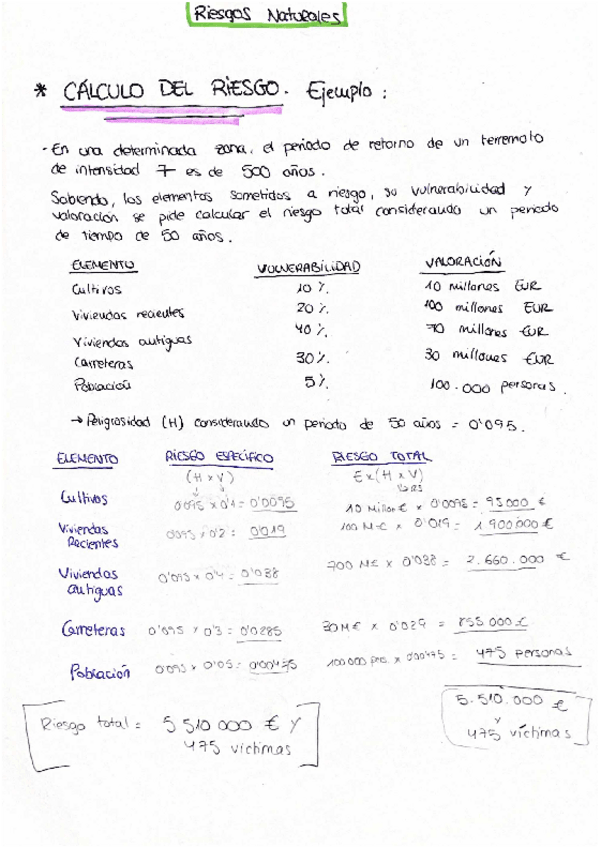 Riesgos Naturales
* CÁLCULO DEL RIESGO. Ejemplo :
· En una determinada zona, el periodo de retorno de un terremoto
de intensidad 7 es de 500 años.
Sabiendo, los elementos sometidos a riesgo, su vulnerabilidad y
valoración se pide calcular el riesgo total considerando un periodo
de tiempo de 50 años.
ELEMENTO VULNERABILIDAD VALORACIÓN
Cultivos 10 % 10 millones EUR
Viviendas recientes 20 % 100 millones EUR
Viviendas antiguas 40 % 70 millones EUR
Carreteras 30 % 30 millones EUR
Población 5 % 100.000 personas.
→ Peligrosidad (H) considerando un periodo de 50 años = 0'095.
ELEMENTO RIESGO ESPECÍFICO RIESGO TOTAL
(H x V) E x (H x V)
Cultivos 0'095 x 0'1 = 0'0095 10 Millon € x 0'0095 = 95000 €
Viviendas Recientes 0'095 x 0'2 = 0'019 100 M€ x 0'019 = 1 900 000 €
Viviendas antiguas 0'095 x 0'4 = 0'038 700 M€ x 0'038 = 2.660.000 €
Carreteras 0'095 x 0'3 = 0'0285 30 M€ x 0'029 = 855 000 €
Población 0'095 x 0'05 = 0'00475 100 000 pers. x 0'00475 = 475 personas
5.510.000 €
y
475 víctimas
Riesgo total = 5 510 000 € y
475 víctimas